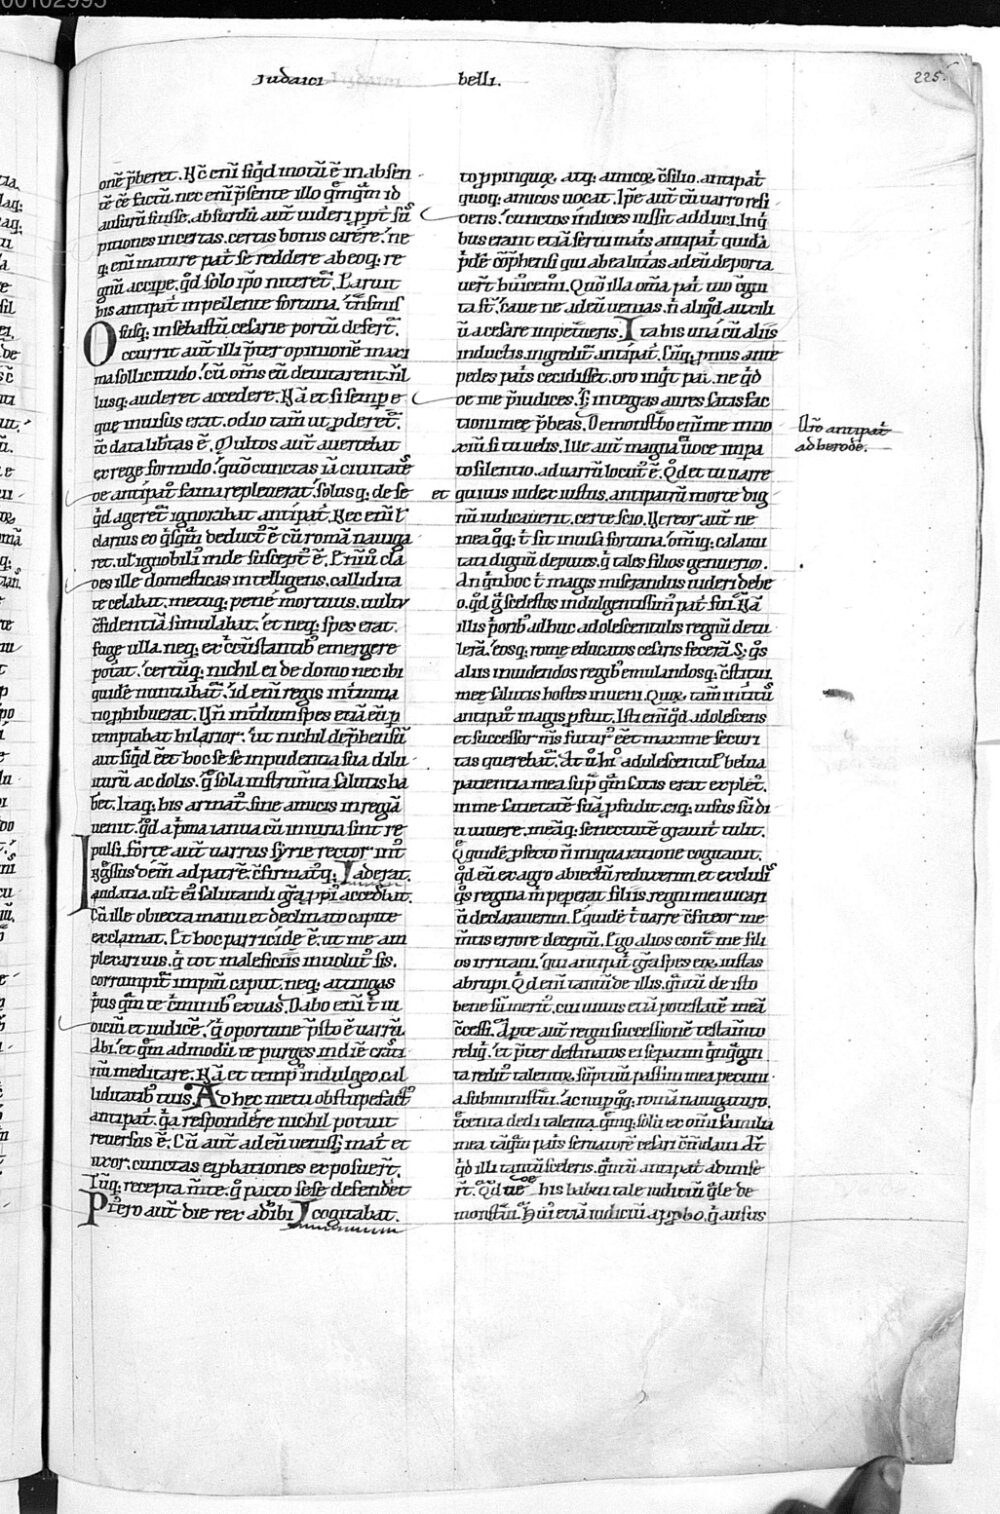 00102995
iudaici belli.
225.
onē p̄beret. Nc̄ eni siqd motū ē in absen
tē eē factū. nec eni p̄sente illo qmqm id
ausurū fuisse. absurdū aut uideri ppt sus
pitiones incertas. certis bonis carere. ne
q; eni mature pat se reddere ab eoq; re
gnū accipe. qd solo ipo niteret. Laruit
his antipat inpellente fortuna. tnsmis
susq; in sebastū cesarie portū desert.
Occurrit aut illi pter opinionē maxi
ma sollicitudo. cū oms eū deuitarent. nł
lusq; auderet accedere. Nā et si semp e
que inuisus erat. odio tam ut pderet.
tc data libtas ē. Multos aut auertebat
ex rege formido. quo cunctas iā ciuitates
de antipat fama repleuerat. solusq; de se
qd ageret ignorabat antipat. Nec eni ł
clarius eo qsqm deduct ē cū romā nauiga
ret. uł ignobili inde suscept ē. Et nim cla
des ille domesticas intelligens. callidita
te celabat. metuq; pene mortuus. uultu
c̄fidentiā simulabat. et neq; spes erat.
fuge ulla. neq; ex c̄cūstantib; emergere
potat. certūq; nichil ei de domo nec ibi
quidē nuntiabat. id eni regis intmina
tio phibuerat. Un intdum spes etiā eū p
temptabat hilarior. ut nichil dephensū
aut siqd eet hoc se se inpudentia sua dilu
iturū ac dolis. q sola instrumta salutis ha
bet. Itaq; his armat sine amicis in regiā
uenit. qd a p̄ma ianua cū iniuria sint re
pulsi. forte aut uarrus syrie rector int
Ingssus dein ad patrē. c̄firmatq; Iaderat.
audatia. ult ei salutandi gra ppi accedbat.
Cū ille obiecta manu et declinato capite
exclamat. Et hoc parricide ē. ut me am
plexari uis. q tot maleficiis inuolut sis.
corrumpit impiū caput. neq; attingas
pus qm te c̄minib; exuas. Dabo eni t iu
diciū et iudicē. q oportune psto ē uarrū.
Abi. et qm admodū te purges in diē crasti
nū meditare. Nā et temp indulgeo cal
liditatib; tuis. Ad hec metu obstupefact
antipat. qa respondere nichil potuit
reuersus ē. Cū aut ad eū uenissi mat et
uxor. cunctas ei pbationes exposuert.
Tūq; recepta mte. q pacto sese defendet
Pstero aut die rex adhibi I cogitabat.
to ppinquoꝝ, atq; amicoꝝ c̄silio. antipat
quoq; amicos uocat. Ipe aut cū uarro resi
dens. cunctos indices iussit adduci. In q
bus erant etiā serui matis antipat quidā
pdē cōphensi qui ab ea litas ad eū deporta
uert hui cemi. Quō illa oma pat tuo cgni
ta st. caue ne ad eū uenias. n aliqd auxili
ū a cesare impetueris. Ita his una cū aliis
inductis. ingredit antipat. Cūq; pnus ante
pedes patis cecidisset. oro inqt pat. ne qd
de me piudices. s; integas aures satisfac
tioni mee pbeas. Demonstbo eni me inno
xiū si tu uelis. Ille aut magna uoce impa
to silentio. ad uarrū locut ē. Qd et tu uarre
et quiuis iudex iustus. antipatrū morte dig
nū iudicauerit. certe scio. Uereor aut ne
mea qq; t sit inuisa fortuna. omiq; calami
tati dignū deputes. q tales filios genuerio.
An qn hoc t magis miserandus uideri debe
o. qd q scelestos indulgentissim pat fui. Nā
illis porib; adhuc adolescentulis regnū detu
lerā. eosq; rome educatos cesaris fecerā. S; qs
aliis inuidendos regib; emulandosq; c̄stitui.
mee salutis hostes inueni. Quoꝝ tam int̄itus
antipat magis pfuit. Isti eni qd adolescens
et successor ms futur eet maxime securi
tas querebat. At ū hic adulescentul belua
patientia mea sup qm satis erat explet.
in me satietatē suā pfudit. eiq; uisus sū di
u uiuere. meāq; senectutē grauit tulit.
Q quidē psecto n iniqua ratione cogitauit.
qd eū ex agro abiectū reduxerim. et exclusis
qs regina m peperat filiis. regni mei uicari
ū declarauerim. Et quidē t uarre c̄fiteor me
mtis errore deceptū. Ego alios cont me fili
os irritaui. qui antipat gra spes eoꝝ iustas
abrupi. Qd eni tantū de illis. qntū de isto
bene sū merit. cui uiuus etiā potestatē meā
c̄cessi. Apte aut regni successionē testamto
reliq. et pter destinatos ei sepatim qnqgin
ta reditū talentoꝝ. sūptuū passim mea pecuni
a subministui. ac nup qq; romā nauigaturo.
tcenta dedi talenta. qmq; solū ex omi familia
mea taqm patis seruatorē cesari cmdaui. At
qd illi tantū sceleris. qntū antipat admise
rt. Qd ue de his habui tale iudiciū qle de
monstui. Hui etiā iudiciū appbo. q ausus
Oro antipat
ad herodē.